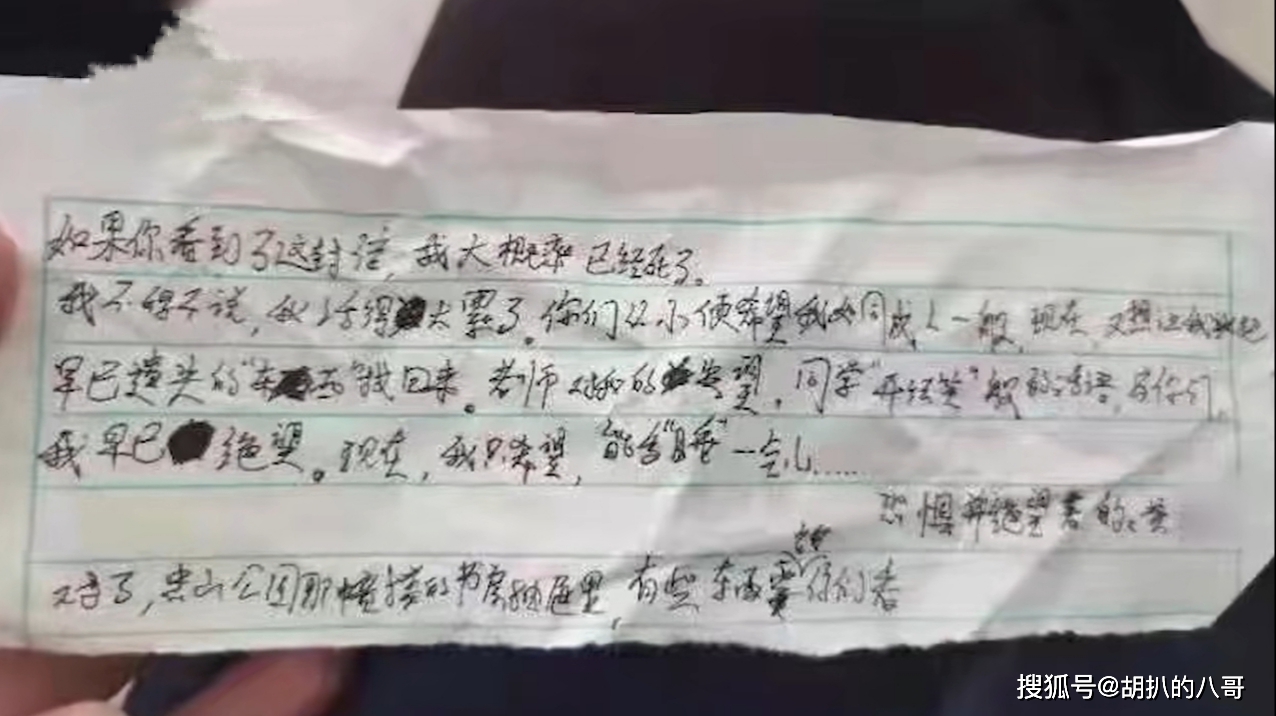 如果你看到了这封信,我大概率已经死了。
我不得不说,我活得太累了。你们从小便希望我如同成人一般,现在,又想让我找起
早已遗失的“东西”找回来。老师对我的失望,同学“开玩笑”般的话语,与你们,
我早已绝望。现在,我只希望,能多“睡”一会儿……
恐惧并绝望着的
对了,公园那幢楼的书房抽屉里,有些东西需要你们看
搜狐号@胡扒的八哥